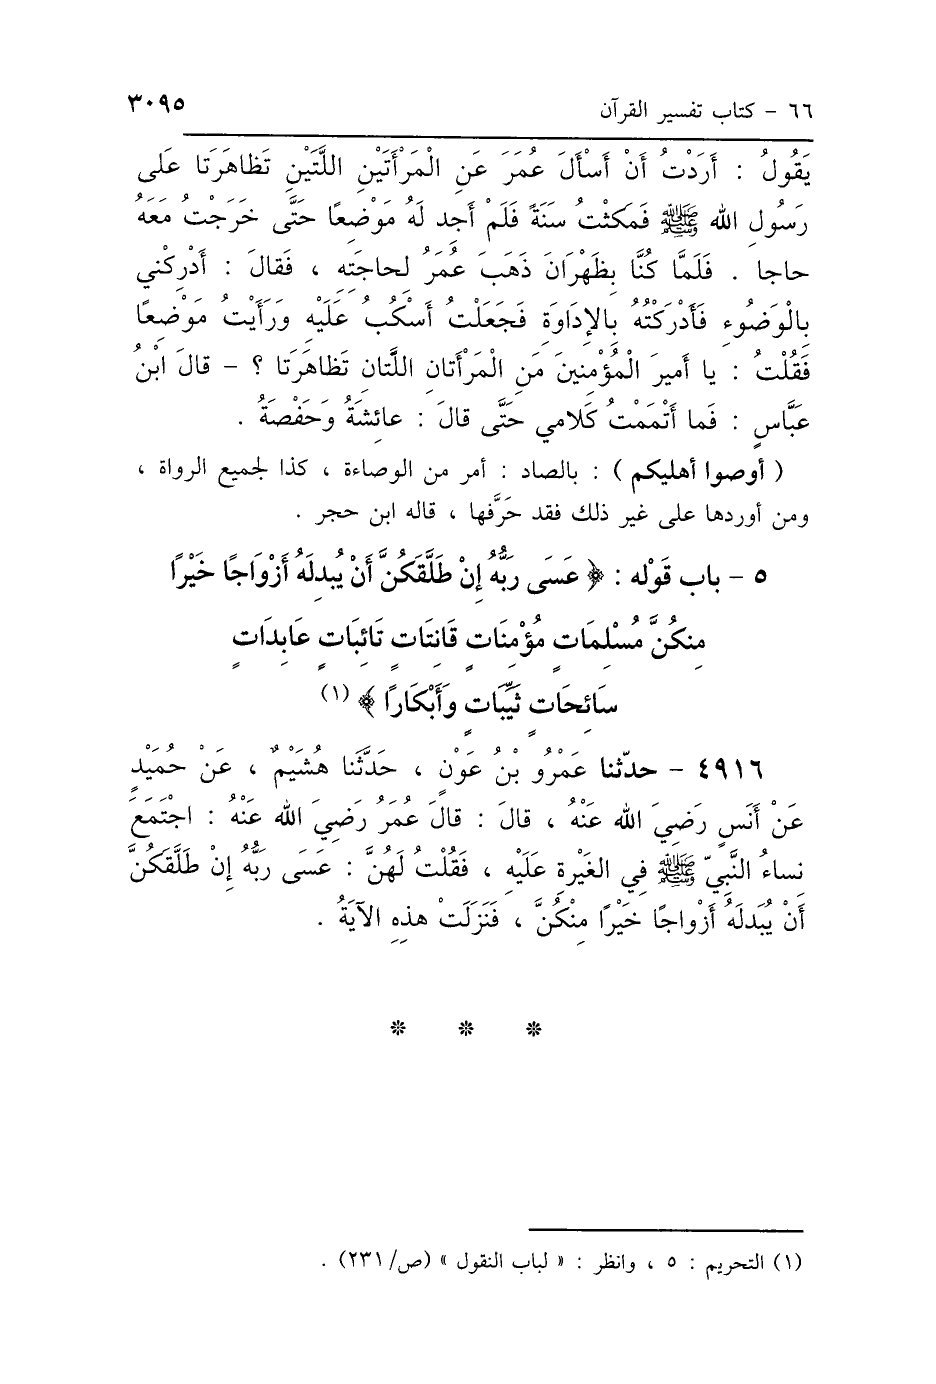 ٦٦ - كتاب تفسير القرآن ٣٠٩٥
يَقُولُ : أَرَدْتُ أَنْ أَسْأَلَ عُمَرَ عَنِ الْمَرْأَتَيْنِ اللَّتَيْنِ تَظاهَرَتا عَلَى
رَسُولِ الله ﷺ فَمَكَثْتُ سَنَةً فَلَمْ أَجِد لَهُ مَوْضِعًا حَتَّى خَرَجْتُ مَعَهُ
حاجا . فَلَمَّا كُنَّا بِظَهْرَانَ ذَهَبَ عُمَرُ لِحاجَتِهِ ، فَقالَ : أَدْرِكْنِي
بِالْوَضُوءِ فَأَدْرَكْتُهُ بِالإِدَاوَةِ فَجَعَلْتُ أَسْكُبُ عَلَيْهِ وَرَأَيْتُ مَوْضِعًا
فَقُلْتُ : يا أَمِيرَ الْمُؤْمِنِينَ مَنِ الْمَرْأَتانِ اللَّتانِ تَظاهَرَتا ؟ - قالَ ابْنُ
عَبَّاسٍ : فَما أَتْمَمْتُ كَلامي حَتَّى قالَ : عائِشَةُ وَحَفْصَةُ .
( أوصوا أهليكم ) : بالصاد : أمر من الوصاءة ، كذا لجميع الرواة ،
ومن أوردها على غير ذلك فقد حَرَّفها ، قاله ابن حجر .
٥ - باب قَوْله : ﴿ عَسَى رَبُّهُ إِنْ طَلَّقَكُنَّ أَنْ يُبدِلَهُ أَزْوَاجًا خَيْرًا
مِنكُنَّ مُسْلِمَاتٍ مُؤْمِنَاتٍ قَانتَاتٍ تَائبَاتٍ عَابِدَاتٍ
سَائِحَاتٍ ثَيِّبَاتٍ وَأَبْكَارًا ﴾ (١)
٤٩١٦ - حدّثنا عَمْرُو بْنُ عَوْنٍ ، حَدَّثَنا هُشَيْمٌ ، عَنْ حُمَيْدٍ
عَنْ أَنَسٍ رَضِيَ الله عَنْهُ ، قالَ : قالَ عُمَرُ رَضِيَ الله عَنْهُ : اجْتَمَعَ
نِساءُ النَّبِيِّ ﷺ فِي الغَيْرةِ عَلَيْهِ ، فَقُلْتُ لَهُنَّ : عَسَى رَبُّهُ إِنْ طَلَّقَكُنَّ
أَنْ يُبَدلَهُ أَزْواجًا خَيْرًا مِنْكُنَّ ، فَنَزَلَتْ هذِهِ الآيَةُ .
* * *
(١) التحريم : ٥ ، وانظر : « لباب النقول » (ص/٢٣١) .